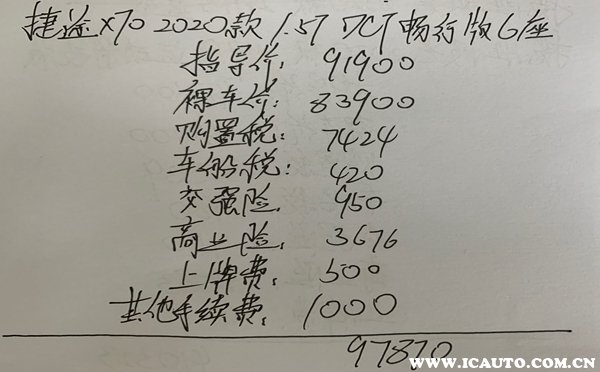 捷途X70 2020款 1.5T DCT畅行版6座
指导价: 91900
裸车价: 83900
购置税: 7424
车船税: 420
交强险: 950
商业险: 3676
上牌费: 500
其他手续费: 1000
97870
WWW.ICAUTO.COM.CN